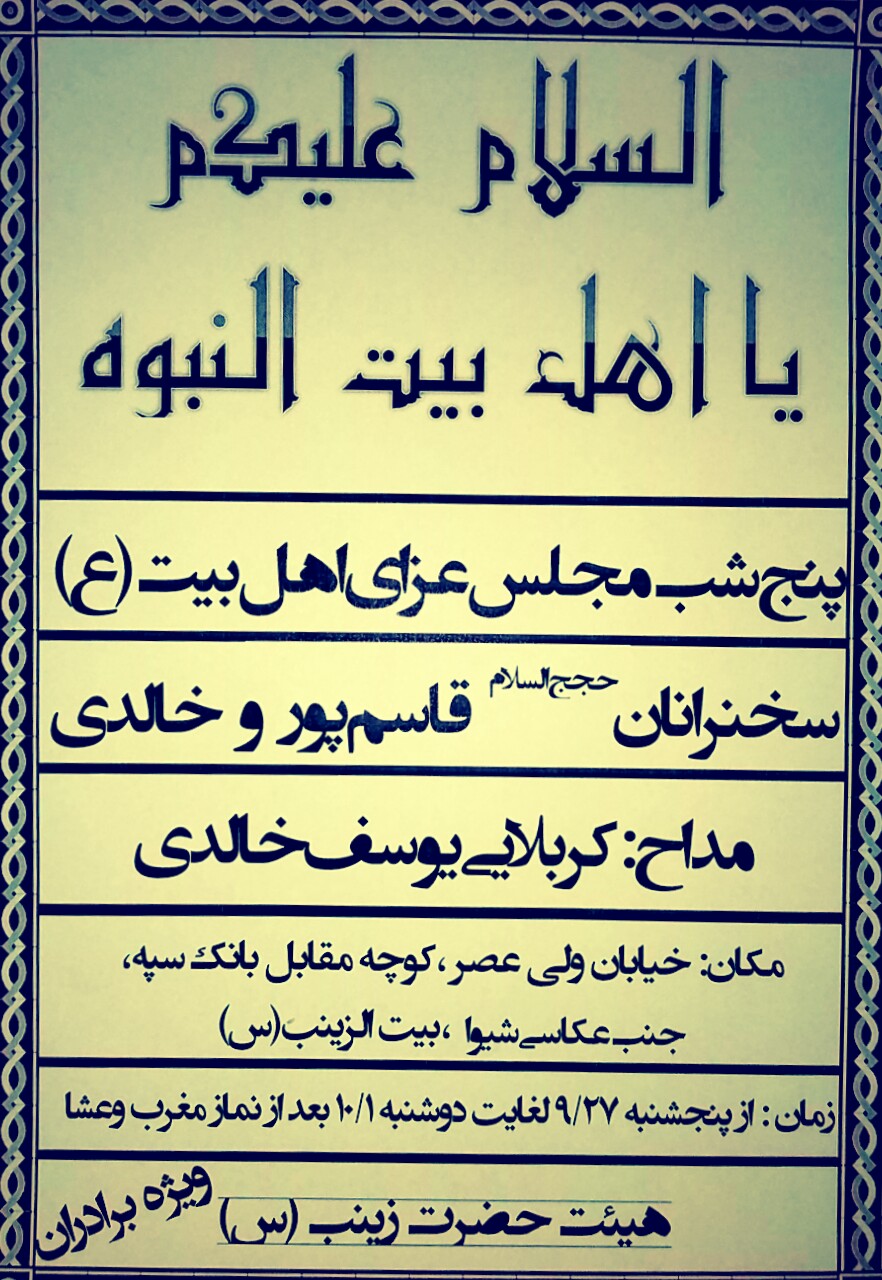 السلام عليكم
يا اهل بيت النبوه
پنج شب مجلس عزای اهل بیت (ع)
سخنرانان حجج السلام قاسم پور و خالدی
مداح: کربلایی یوسف خالدی
مکان: خیابان ولی عصر ،کوچه مقابل بانک سپه،
جنب عکاسی شیوا ،بیت الزینب(س)
زمان : از پنجشنبه ۹/۲۷ لغایت دوشنبه ۱۰/۱ بعد از نماز مغرب وعشا
هیئت حضرت زینب (س)
ویژه برادران